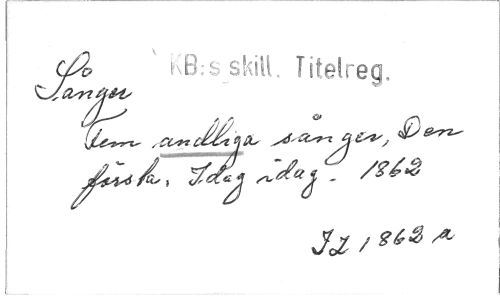 KB:s skill. Titelreg.
Sånger
Fem andliga sånger, Den
första, Idag idag. 1862
IZ 1862 a